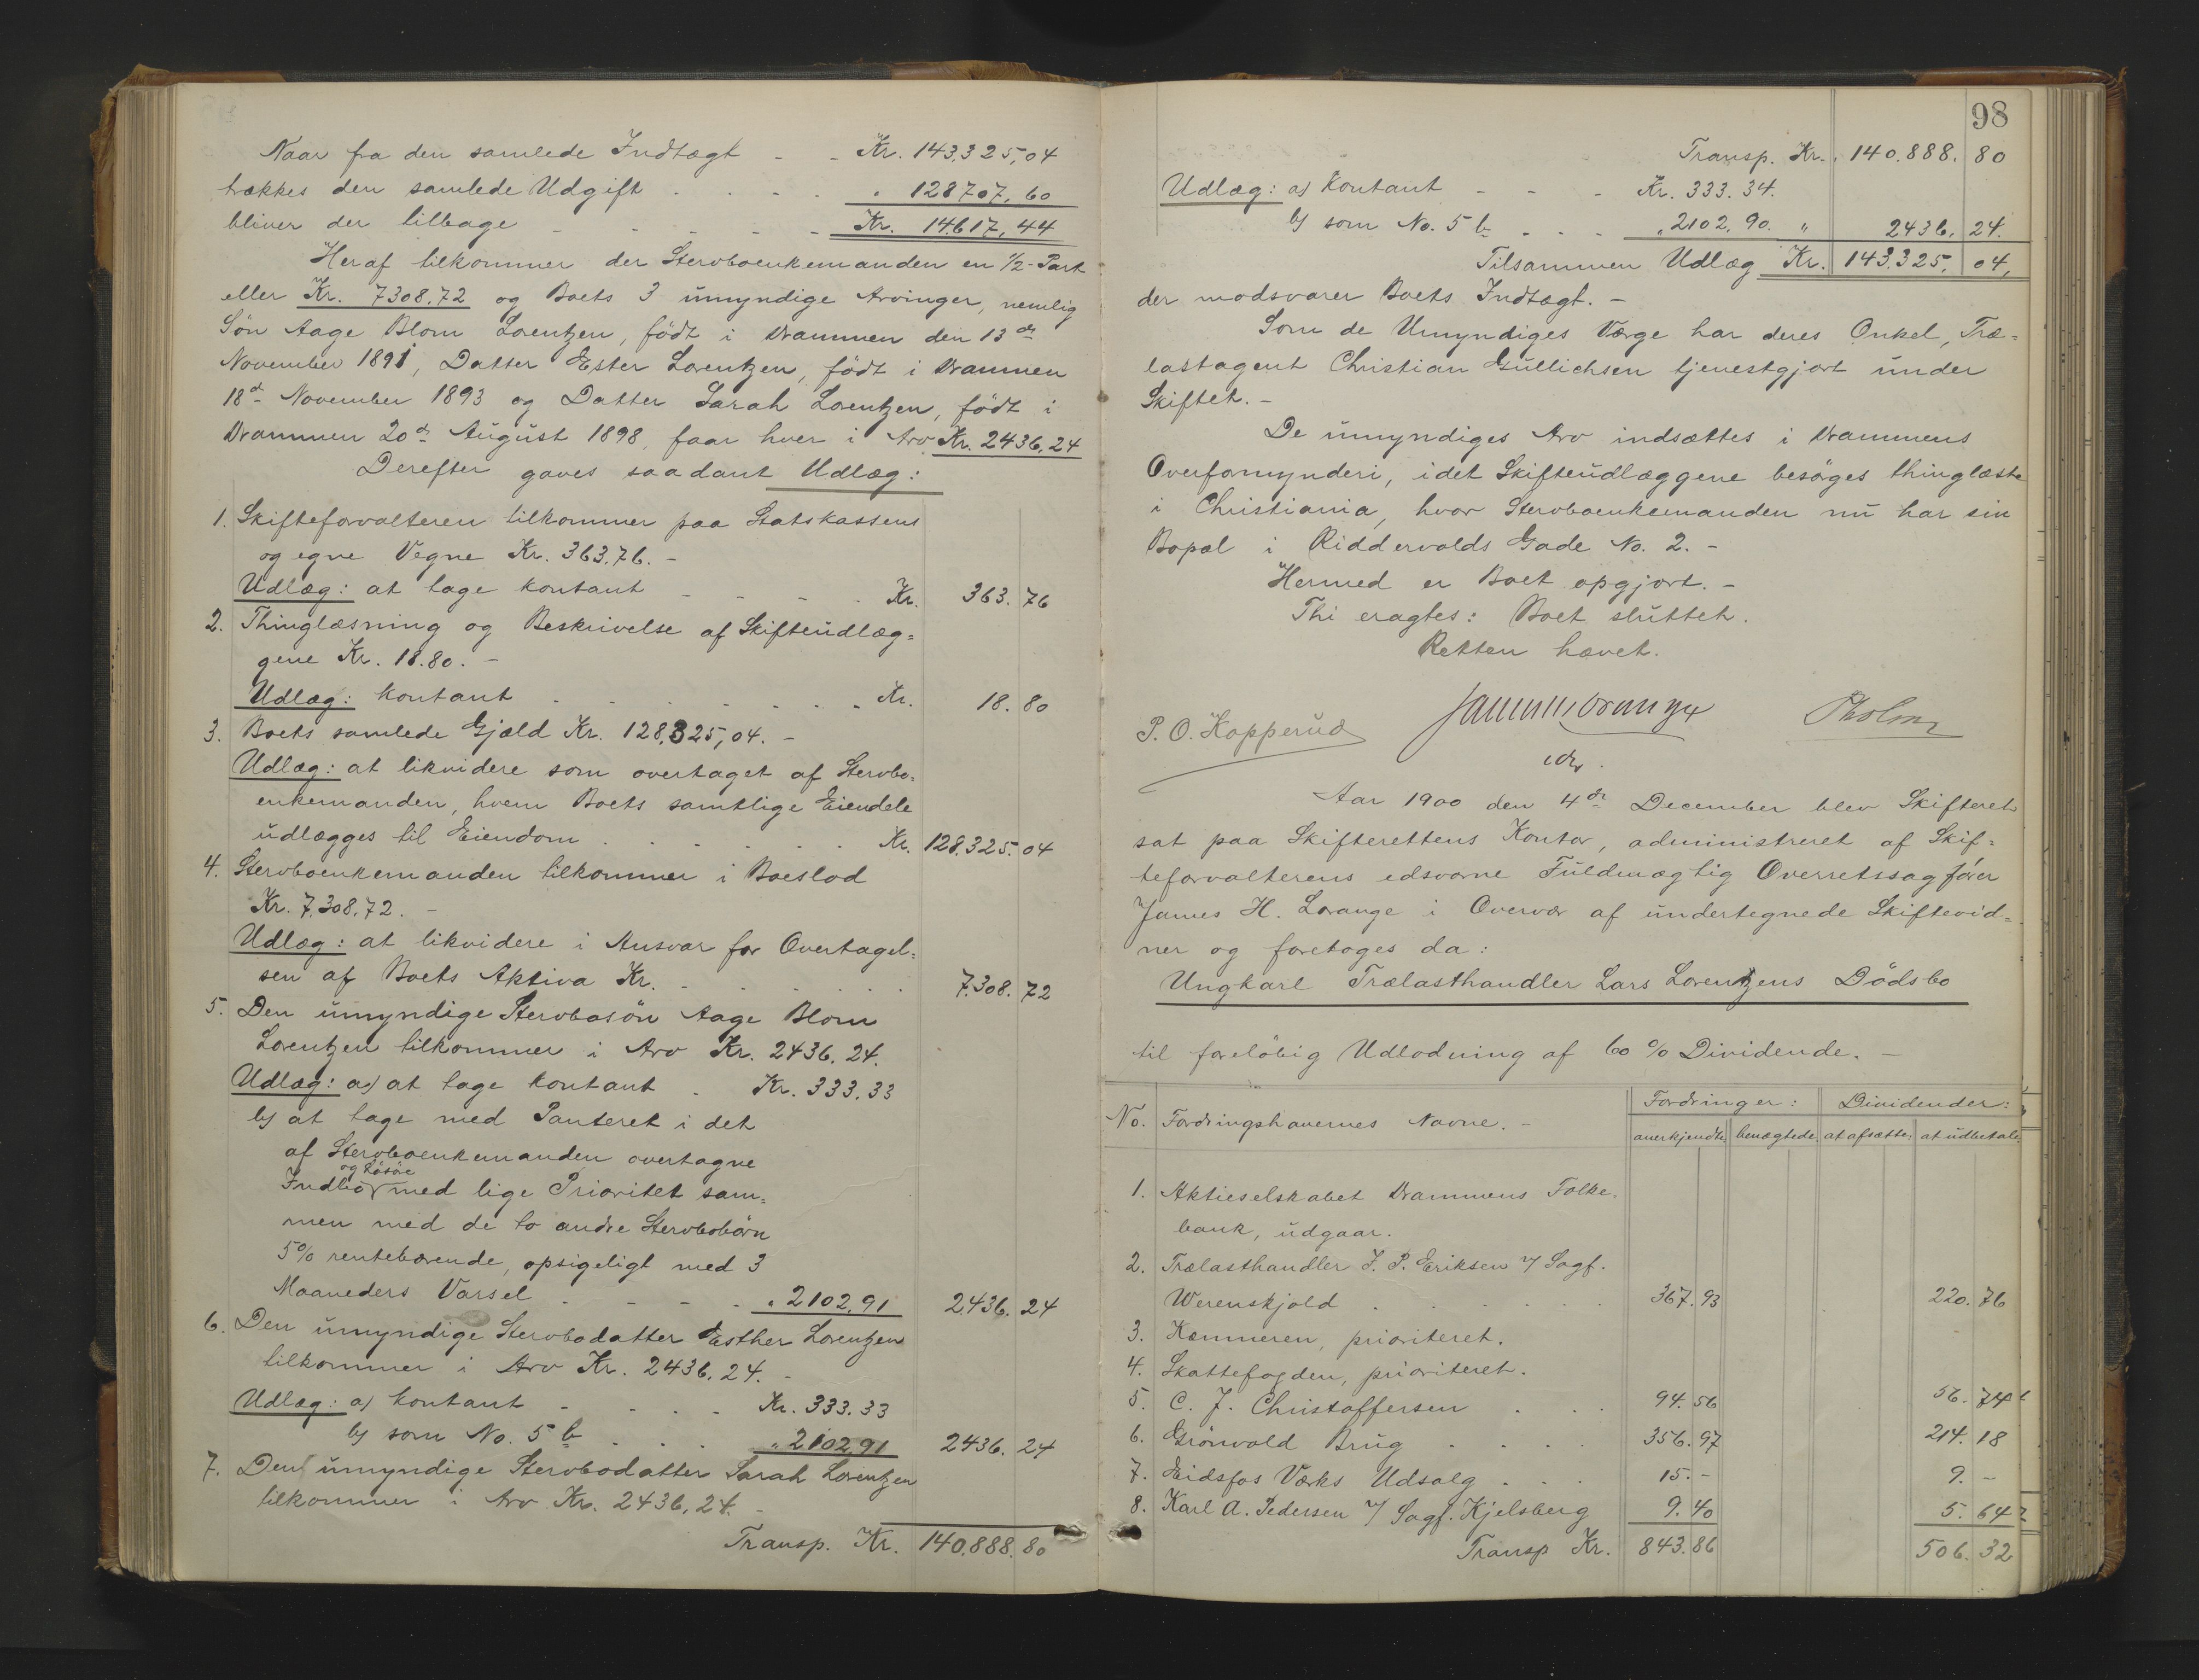 Naar fra den samlede Indtægt - - Kr. 143,325,04
trækkes den samlede Udgift . . . . " 128707,60
bliver der tilbage - - - - - Kr. 14617,44
Heraf tilkommer der Stervboenkemanden en 1/2-Part
eller Kr. 7308.72 og Boets 3 umyndige Arvinger, nemlig
Sön Aage Blom Lorentzen, födt i Drammen den 13de
November 1891, Datter Ester Lorentzen, födt i Drammen
18de November 1893 og Datter Sarah Lorentzen, födt i
Drammen 20de August 1898, faar hver i Arv Kr. 2436,24
Derefter gaves saadant Udlæg:
1. Skifteforvalteren tilkommer paa Statskassens
og egne Vegne Kr. 363.76. -
Udlæg: at tage kontant - - - . Kr. 363. 76
2. Thinglæsning og Beskrivelse af Skifteudlæg=
gene Kr. 18.80. -
Udlæg: kontant . . . . . . . Kr. 18. 80
3. Boets samlede Gjæld Kr. 128,325,04. -
Udlæg: at likvidere som overtaget af Stervbo=
enkemanden, hvem Boets samtlige Eiendele
udlægges til Eiendom . . . . . . Kr. 128.325. 04
4. Stervboenkemanden tilkommer i Boeslod
Kr. 7,308,72. -
Udlæg: at likvidere i Ansvar for Overtagel=
sen af Boets Aktiva Kr. . . . . . . 7.308. 72
5. Den umyndige Stervbosön Aage Blom
Lorentzen tilkommer i Arv Kr. 2436. 24.
Udlæg: a) at tage kontant . Kr. 333.33
b) at tage med Panteret i det
af Stervboenkemanden overtagne
og Lösöe
Indbo med lige Prioritet sam=
men med de to andre Stervbobörn
5% rentebærende, opsigeligt med 3
Maaneders Varsel . - - - . " 2102,91 2,436. 24
6. Den umyndige Stervbodatter Esther Lorentzen
tilkommer i Arv Kr. 2436, 24. -
Udlæg: a) kontant - - - - Kr. 333.33
b) som No. 5 b . . . " 2102,91 2436. 24
7. Den umyndige Stervbodatter Sarah Lorentzen
tilkommer i Arv Kr. 2436, 24. -
Transp. Kr. 140.888. 80
98
Transp. Kr. 140.888. 80
Udlæg: a) kontant - - - Kr. 333. 34.
b) som No. 5 b . . . " 2102. 90. " 2436. 24.
Tilsammen Udlæg Kr. 143.325. 04,
der modsvarer Boets Indtægt. -
Som de Umyndiges Værge har deres Onkel, Træ=
lastagent Christian Gullichsen tjenestgjort under
Skiftet. -
De umyndiges Arv indsættes i Drammens
Overformynderi, idet Skifteudlæggene besöges thinglæste
i Christiania, hvor Stervboenkemanden nu har sin
Bopæl i Riddervolds Gade No. 2. -
Hermed er Boet opgjort. -
Thi eragtes: Boet sluttet.
Retten hævet.
P. O. Kopperud
Aar 1900 den 4de December blev Skifteret
sat paa Skifterettens Kontor, administreret af Skif=
teforvalterens edsvorne Fuldmægtig Overretssagförer
James H. Lorange i Overvær af undertegnede Skiftevid=
ner og foretoges da:
Ungkarl Trælasthandler Lars Lorentzens Dödsbo
til forelöbig Udlodning af 60 % Dividende. -
No. Fordringshavernes Navne. - Fordringer: Dividender:
anerkjendte benægtede at afsætte at udbetale
1. Aktieselskabet Drammens Folke=
bank, udgaar.
2. Trælasthandler J. P. Eriksen v/ Sagf.
Werenskjold . . . . . . 367. 93 220. 76
3. Kæmneren, prioriteret.
4. Skattefogden, prioriteret.
5. C. J. Christoffersen . . . 94. 56 56. 74
6. Grönvold Brug . . . . 356. 97 214. 18
7. Eidsfos Værks Udsalg . . . 15. - 9. -
8. Karl A. Pedersen v/ Sagf. Kjelsberg 9. 40 5. 64
Transp Kr. 843. 86 506. 32